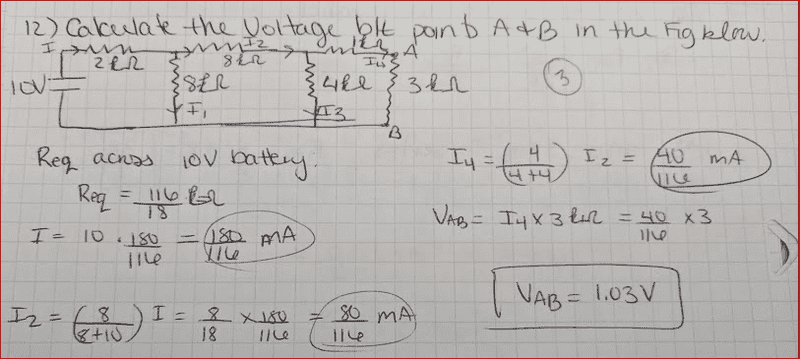 12) Calculate the Voltage bt point A & B in the Fig below.
I I2 1kΩ A
2kΩ 8kΩ I4
10V 8kΩ 4kΩ 3kΩ 3
I1 I3
B
Req across 10V battery.
Req = 116/18 kΩ
I = 10 · 180/116 = 180/116 mA
I2 = (8/(8+10)) I = 8/18 × 180/116 = 80/116 mA
I4 = (4/(4+4)) I2 = 40/116 mA
VAB = I4 × 3kΩ = 40/116 × 3
VAB = 1.03V